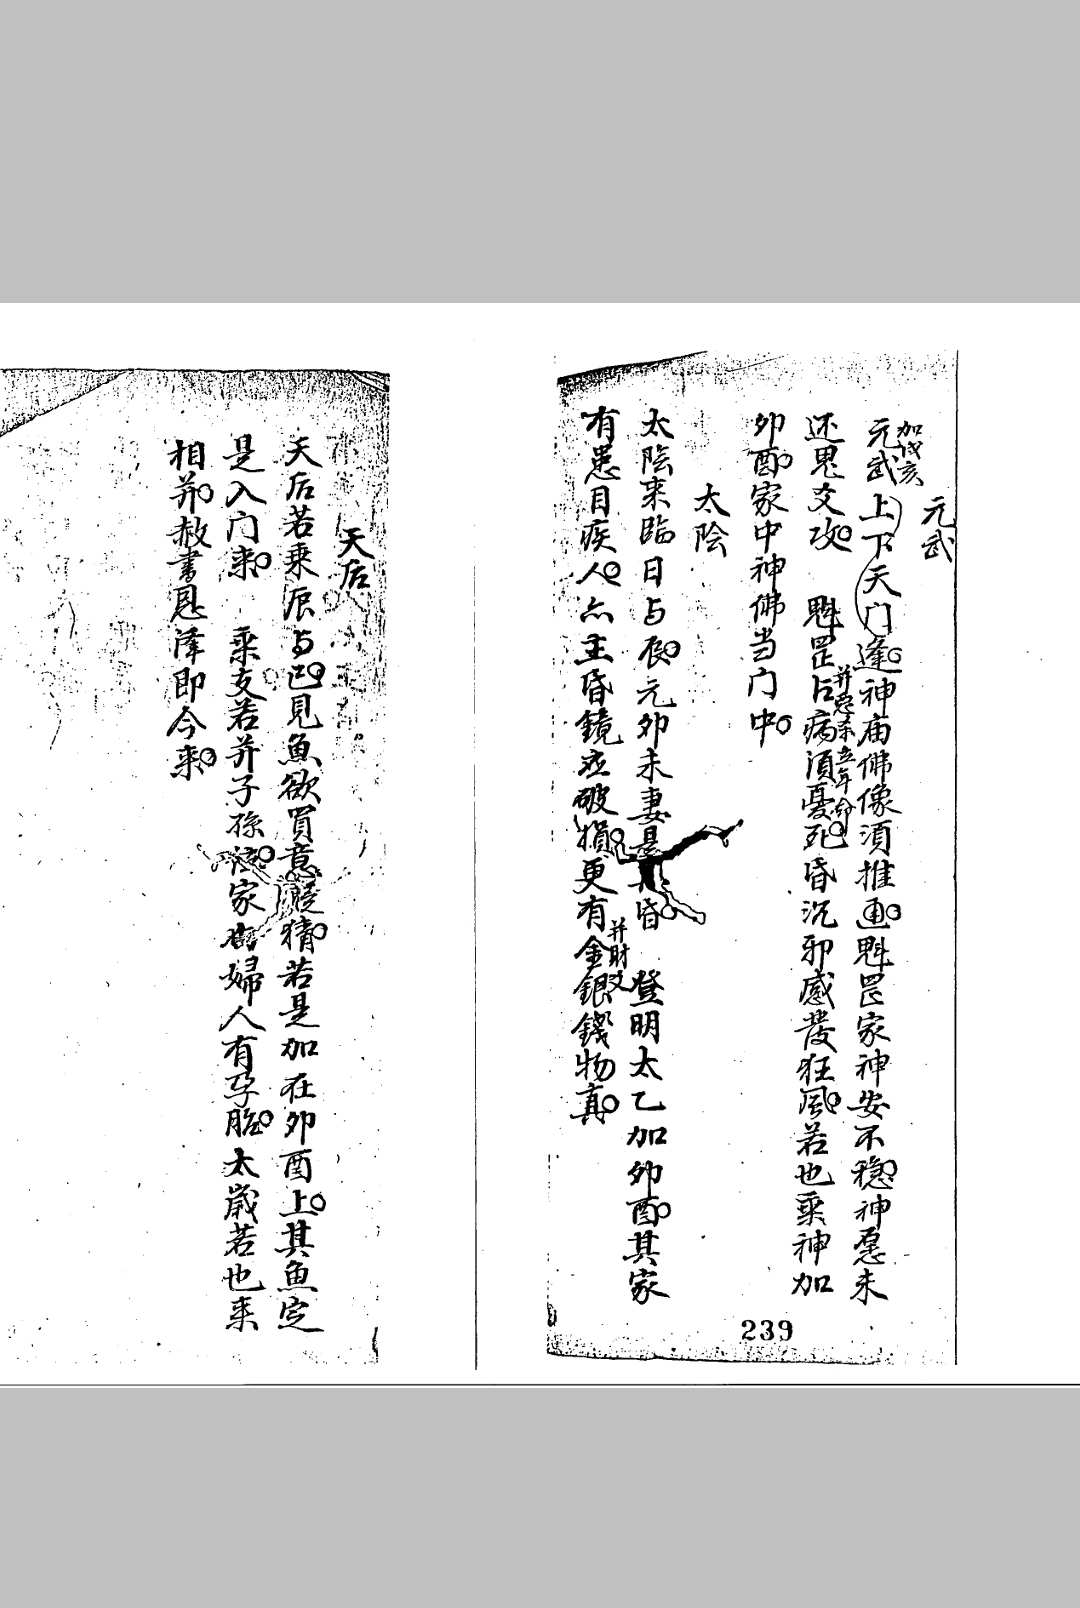 元武
加戌亥
元武上下天门逢神庙佛像須推通魁罡家神安不穩神愿未
还鬼交攻 魁罡占病須憂死昏沉邪感發狂風若也乘神加
并惡杀 立年命
卯酉家中神佛当门中
太陰
太陰来臨日与辰元卯未妻是昏 登明太乙加卯酉其家
有患目疾人亦主昏鏡並破損更有金銀錢物真
并財爻
239
天后
天后若乘辰与巳見魚欲買意猜若是加在卯酉上其魚定
是入门来 乘支若并子孫家婦人有孕胎太歲若也来
相并赦書恩泽即今来